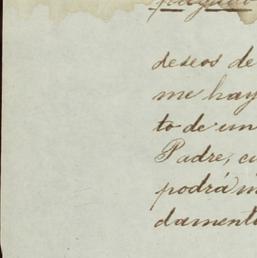 deseos de
me hay
to de un
Padre,
podrá
damento